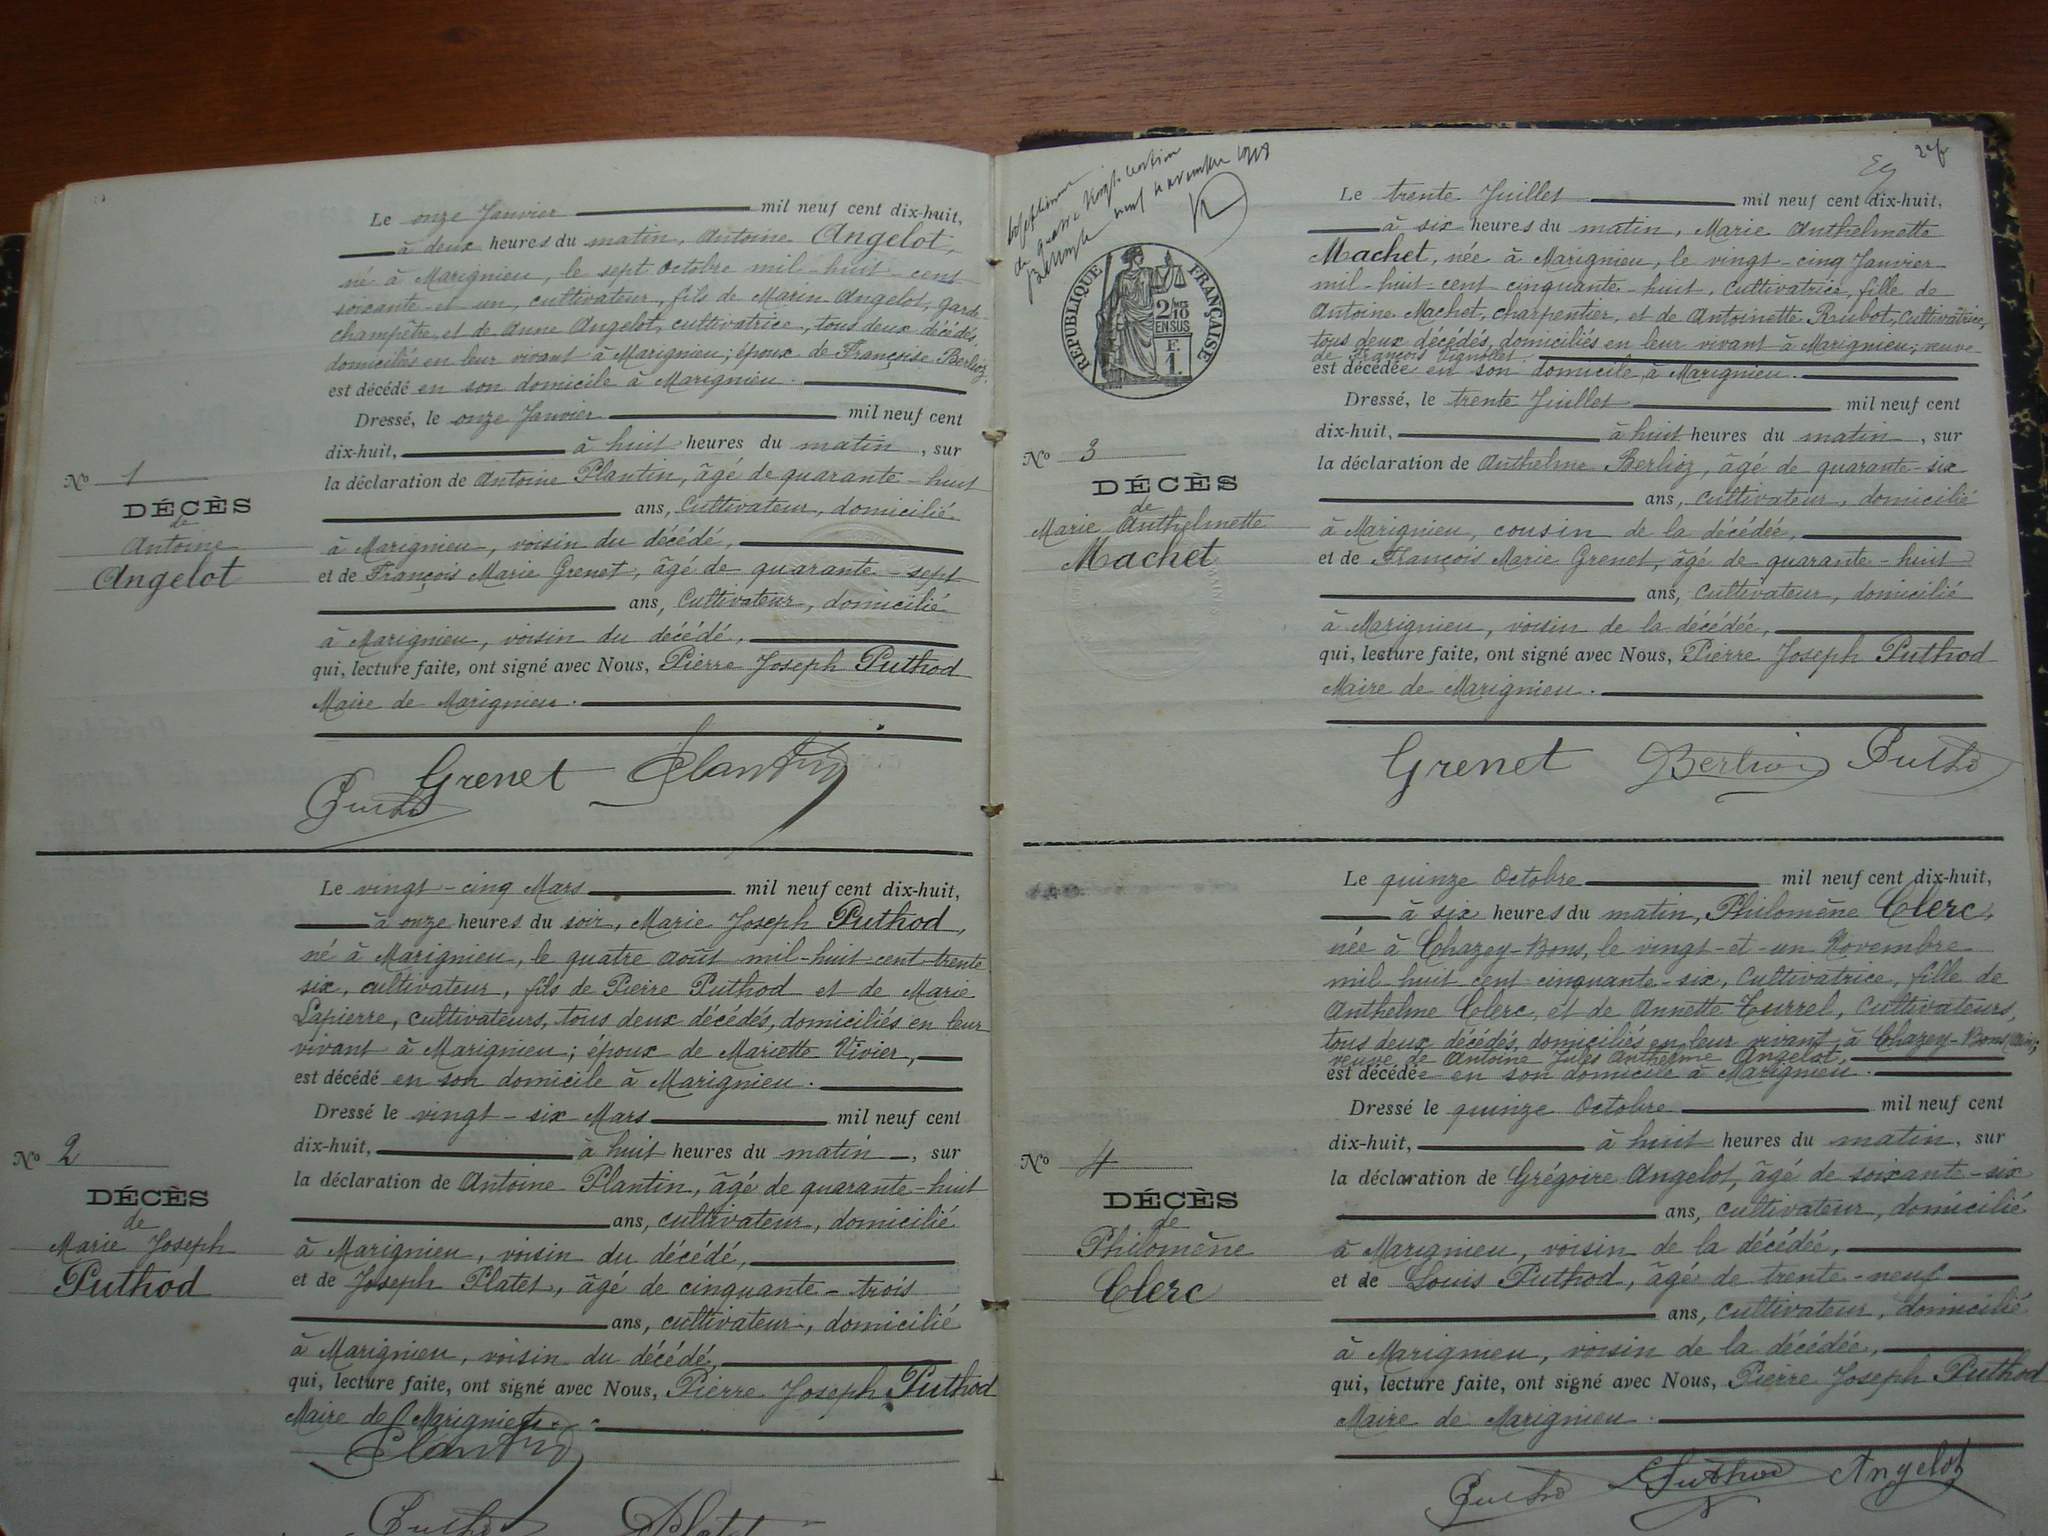 Le onze Janvier mil neuf cent dix-huit,
à deux heures du matin, Antoine Angelot,
né à Marignieu, le sept Octobre mil-huit-cent
soixante-et un, cultivateur, fils de Marin Angelot, garde-
champêtre, et de Anne Angelot, cultivatrice, tous deux décédés,
domiciliés en leur vivant à Marignieu; époux de Françoise Berlioz,
est décédé en son domicile à Marignieu.
Dressé, le onze Janvier mil neuf cent
dix-huit, à huit heures du matin, sur
la déclaration de Antoine Plantin, âgé de quarante-huit
ans, cultivateur, domicilié
à Marignieu, voisin du décédé,
et de François Marie Grenet, âgé de quarante-sept
ans, cultivateur, domicilié
à Marignieu, voisin du décédé,
qui, lecture faite, ont signé avec Nous, Pierre Joseph Puthod
Maire de Marignieu.
No 1
DÉCÈS
de
Antoine
Angelot
Grenet Plantin
Puthod
Le vingt-cinq Mars mil neuf cent dix-huit,
à onze heures du soir, Marie Joseph Puthod,
né à Marignieu, le quatre août mil-huit-cent-trente
six, cultivateur, fils de Pierre Puthod et de Marie
Lapierre, cultivateurs, tous deux décédés, domiciliés en leur
vivant à Marignieu; époux de Mariette Vivier,
est décédé en son domicile à Marignieu.
Dressé le vingt-six Mars mil neuf cent
dix-huit, à huit heures du matin, sur
la déclaration de Antoine Plantin, âgé de quarante-huit
ans, cultivateur, domicilié
à Marignieu, voisin du décédé,
et de Joseph Platet, âgé de cinquante-trois
ans, cultivateur, domicilié
à Marignieu, voisin du décédé,
qui, lecture faite, ont signé avec Nous, Pierre Joseph Puthod
Maire de Marignieu.
No 2
DÉCÈS
de
Marie Joseph
Puthod
Plantin
Puthod Platet
de quatre vingt
neuf novembre 1918
RÉPUBLIQUE FRANÇAISE
2/10
EN SUS
F.
1.
Le trente Juillet mil neuf cent dix-huit,
à six heures du matin, Marie Anthelmette
Machet, née à Marignieu, le vingt-cinq Janvier
mil-huit-cent cinquante-huit, cultivatrice, fille de
Antoine Machet, charpentier, et de Antoinette Rubot, cultivatrice,
tous deux décédés, domiciliés en leur vivant à Marignieu; veuve
de François Vignollet.
est décédée en son domicile à Marignieu.
Dressé, le trente Juillet mil neuf cent
dix-huit, à huit heures du matin, sur
la déclaration de Anthelme Berlioz, âgé de quarante-six
ans, cultivateur, domicilié
à Marignieu, cousin de la décédée,
et de François Marie Grenet, âgé de quarante-huit
ans, cultivateur, domicilié
à Marignieu, voisin de la décédée,
qui, lecture faite, ont signé avec Nous, Pierre Joseph Puthod
Maire de Marignieu.
No 3
DÉCÈS
de
Marie Anthelmette
Machet
Grenet Berlioz Puthod
Le quinze Octobre mil neuf cent dix-huit,
à six heures du matin, Philomène Clerc,
née à Chazey-Bons, le vingt-et-un Novembre
mil huit cent cinquante-six, cultivatrice, fille de
Anthelme Clerc, et de Annette Turrel, cultivateurs,
tous deux décédés, domiciliés en leur vivant à Chazey-Bons (Ain);
veuve de Antoine Jules Anthelme Angelot,
est décédée en son domicile à Marignieu.
Dressé le quinze Octobre mil neuf cent
dix-huit, à huit heures du matin, sur
la déclaration de Grégoire Angelot, âgé de soixante-six
ans, cultivateur, domicilié
à Marignieu, voisin de la décédée,
et de Louis Puthod, âgé de trente-neuf
ans, cultivateur, domicilié
à Marignieu, voisin de la décédée,
qui, lecture faite, ont signé avec Nous, Pierre Joseph Puthod
Maire de Marignieu.
No 4
DÉCÈS
de
Philomène
Clerc
Puthod Puthod Angelot